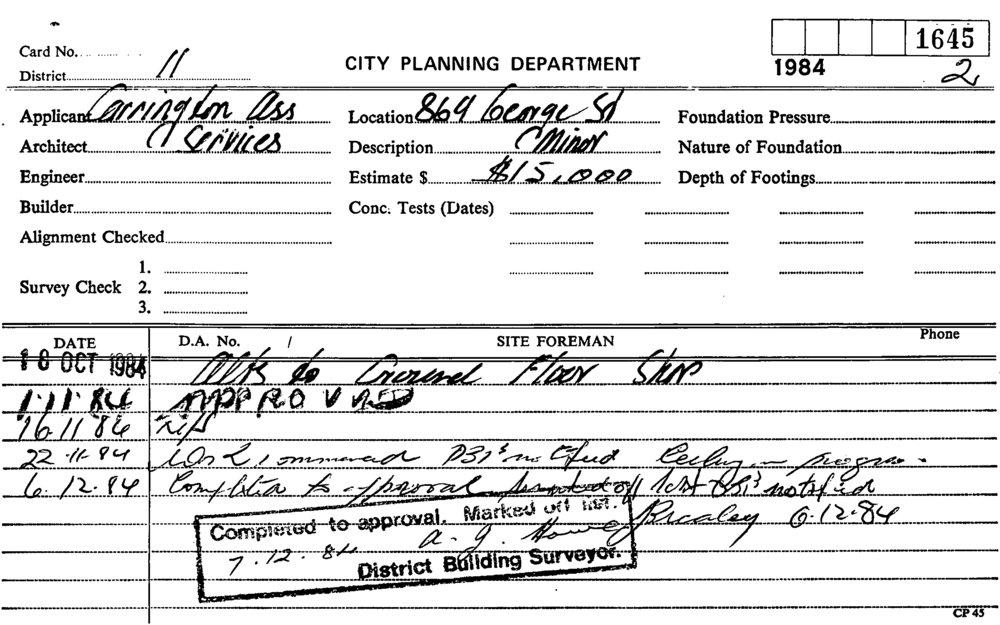 1645
Card No.
1984
2
District 11
CITY PLANNING DEPARTMENT
Applicant Carrington Ass
Location 869 George St
Foundation Pressure
Architect Services
Description Minor
Nature of Foundation
Engineer
Estimate $ $15,000
Depth of Footings
Builder
Conc. Tests (Dates)
Alignment Checked
1.
Survey Check 2.
3.
DATE
D.A. No. /
SITE FOREMAN
Phone
18 OCT 1984
Alts to Ground Floor Shop
1.11.84 APPROVED
16.11.84 N/S
22.11.84 commenced notified Ceiling in progress.
6.12.84 Completed to approval off notified
Brealey 6.12.84
Completed to approval. Marked off list.
7.12.84 a. g. Howe
District Building Surveyor.
CP 45